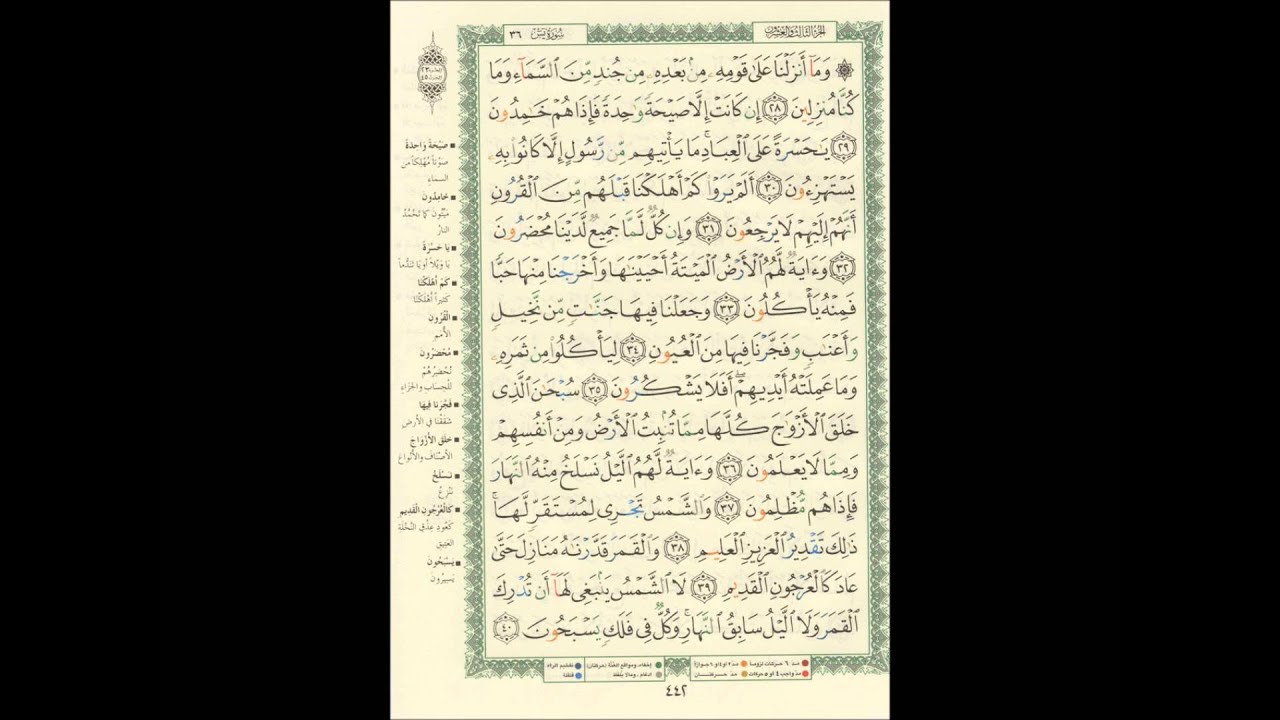 الجزء الثالث والعشرون
سورة يس ٣٦
۞ وَمَآ أَنزَلْنَا عَلَىٰ قَوْمِهِۦ مِنۢ بَعْدِهِۦ مِن جُندٍ مِّنَ ٱلسَّمَآءِ وَمَا
كُنَّا مُنزِلِينَ ٢٨ إِن كَانَتْ إِلَّا صَيْحَةً وَٰحِدَةً فَإِذَا هُمْ خَٰمِدُونَ
٢٩ يَٰحَسْرَةً عَلَى ٱلْعِبَادِ ۚ مَا يَأْتِيهِم مِّن رَّسُولٍ إِلَّا كَانُوا۟ بِهِۦ
يَسْتَهْزِءُونَ ٣٠ أَلَمْ يَرَوْا۟ كَمْ أَهْلَكْنَا قَبْلَهُم مِّنَ ٱلْقُرُونِ
أَنَّهُمْ إِلَيْهِمْ لَا يَرْجِعُونَ ٣١ وَإِن كُلٌّ لَّمَّا جَمِيعٌ لَّدَيْنَا مُحْضَرُونَ
٣٢ وَءَايَةٌ لَّهُمُ ٱلْأَرْضُ ٱلْمَيْتَةُ أَحْيَيْنَٰهَا وَأَخْرَجْنَا مِنْهَا حَبًّا
فَمِنْهُ يَأْكُلُونَ ٣٣ وَجَعَلْنَا فِيهَا جَنَّٰتٍ مِّن نَّخِيلٍ
وَأَعْنَٰبٍ وَفَجَّرْنَا فِيهَا مِنَ ٱلْعُيُونِ ٣٤ لِيَأْكُلُوا۟ مِن ثَمَرِهِۦ
وَمَا عَمِلَتْهُ أَيْدِيهِمْ ۖ أَفَلَا يَشْكُرُونَ ٣٥ سُبْحَٰنَ ٱلَّذِى
خَلَقَ ٱلْأَزْوَٰجَ كُلَّهَا مِمَّا تُنۢبِتُ ٱلْأَرْضُ وَمِنْ أَنفُسِهِمْ
وَمِمَّا لَا يَعْلَمُونَ ٣٦ وَءَايَةٌ لَّهُمُ ٱلَّيْلُ نَسْلَخُ مِنْهُ ٱلنَّهَارَ
فَإِذَا هُم مُّظْلِمُونَ ٣٧ وَٱلشَّمْسُ تَجْرِى لِمُسْتَقَرٍّ لَّهَا ۚ
ذَٰلِكَ تَقْدِيرُ ٱلْعَزِيزِ ٱلْعَلِيمِ ٣٨ وَٱلْقَمَرَ قَدَّرْنَٰهُ مَنَازِلَ حَتَّىٰ
عَادَ كَٱلْعُرْجُونِ ٱلْقَدِيمِ ٣٩ لَا ٱلشَّمْسُ يَنۢبَغِى لَهَآ أَن تُدْرِكَ
ٱلْقَمَرَ وَلَا ٱلَّيْلُ سَابِقُ ٱلنَّهَارِ ۚ وَكُلٌّ فِى فَلَكٍ يَسْبَحُونَ ٤٠
الجزء ٢٣
الحزب ٤٥
■ صَيْحَةً وَاحِدَةً
صَوْتاً مُهْلِكاً مِنَ
السماءِ
■ خامِدُون
مَيِّتُون كما تَخْمُدُ
النارُ
■ يا حَسْرَةً
يا وَيْلاً أو يا تَنَدُّماً
■ كَمْ أهْلَكْنَا
كثيراً أَهْلَكْنَا
■ الْقُرُون
الأُمَم
■ مُحْضَرُون
نُحْضِرُهُمْ
للْحِسابِ والجَزاءِ
■ فَجَّرْنا فيها
شَقَقْنا في الأرض
■ خلق الأزْوَاجَ
الأصْنَافَ والأنْواعَ
■ نَسْلَخُ
نَنْزِعُ
■ كَالْعُرْجُونِ القَدِيمِ
كَعُودِ عِذْقِ النَّخْلَةِ
العَتيقِ
■ يَسْبَحُون
يَسيرُون
مد ٦ حركات لزوماً ● مدّ ٢ أو ٤ أو ٦ جوازاً
مدّ واجب ٤ أو ٥ حركات ● مدّ حركتان
إخفاء، ومواقع الغُنَّة (حركتان) ● تفخيم الراء
ادغام، وما لا يُلفَظ ● قلقلة
٤٤٢